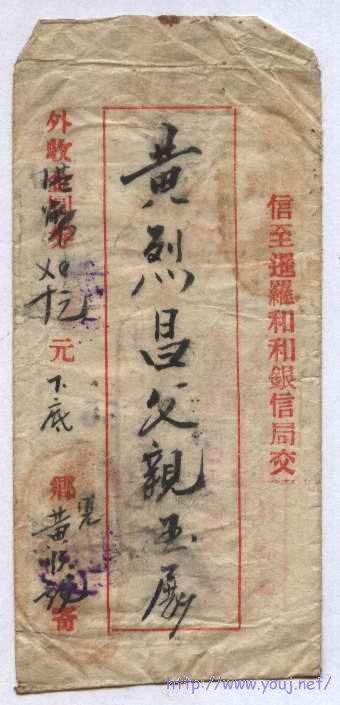 信至暹羅和和銀信局交
黄烈昌父親玉展
外收港幣元下底鄉兒黄寄
http://www.youj.net/